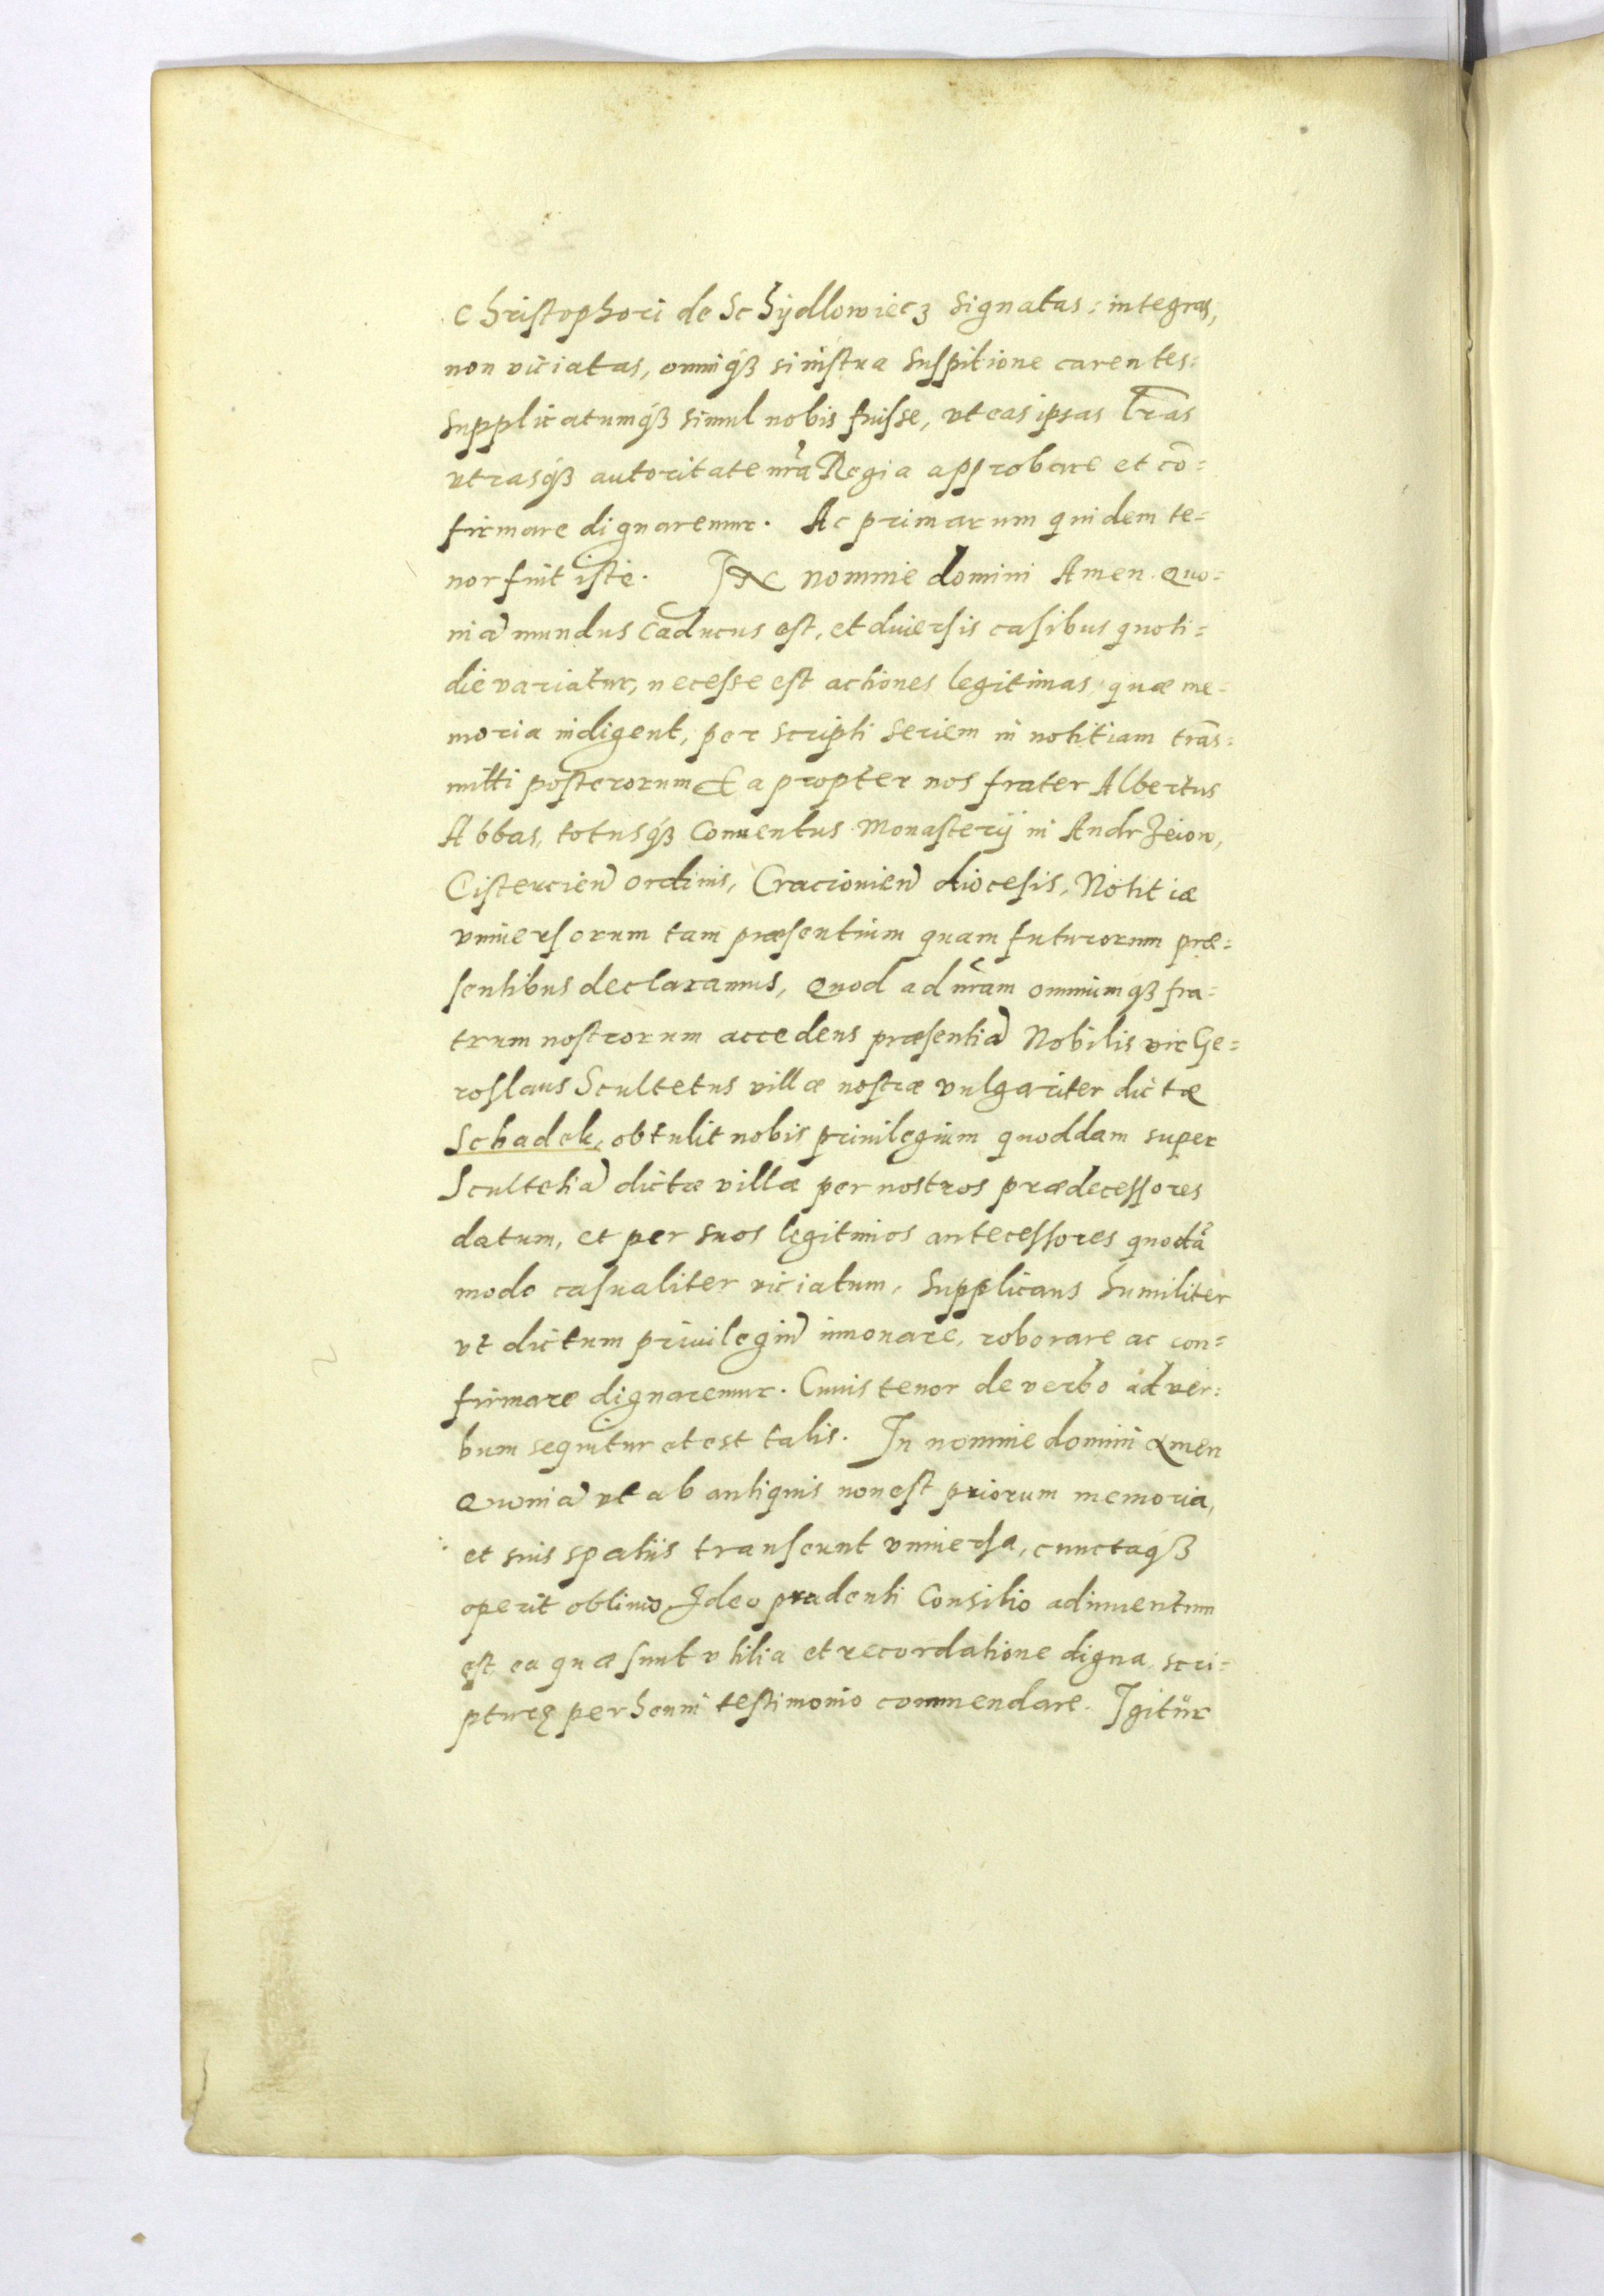 Christophori de Schydlowiecz signatas, integras,
non viciatas, omniqȝ sinistra suspitione carentes:
supplicatumqȝ simul nobis fuisse, vt eas ipsas lr̃as
vtrasqȝ autoritate nr̃a Regia approbare et cõ=
firmare dignaremur. Ac primarum quidem te=
nor fuit iste. IN nomine domini Amen. Quo=
niã mundus caducus est, et diuersis casibus quoti=
die variatur, necesse est actiones legitimas, quæ me=
moria indigent, per scripti seriem in notitiam trãs=
mitti posterorum Ea propter nos frater Albertus
Abbas, totusqȝ Conuentus Monasterij in Andrzeiow,
Cistercieñ ordinis, Cracouieñ diocesis, Notitiæ
vniuersorum tam præsentium quam futurorum præ=
sentibus declaramus, Quod ad nr̃am omniumqȝ fra=
trum nostrorum accedens præsentiã Nobilis vir Ge=
roslaus Scultetus villæ nostræ vulgariter dictæ
Schadek, obtulit nobis priuilegium quoddam super
Scultetiã dictæ villæ per nostros prædecessores
datum, et per suos legitimos antecessores quodã
modo casualiter viciatum, Supplicans humiliter
vt dictum priuilegiũ innouare, roborare ac con=
firmare dignaremur. Cuius tenor de verbo ad ver=
bum sequitur et est talis. In nomine domini Amen
Quoniã vt ab antiquis non est priorum memoria,
et suis spatiis transeunt vniuersa, cunctaqȝ
operit obliuio, Ideo prudenti Consilio adinuentum
est, ea quæ sunt vtilia et recordatione digna, scri=
pturę perhenni testimonio commendare. Igitur